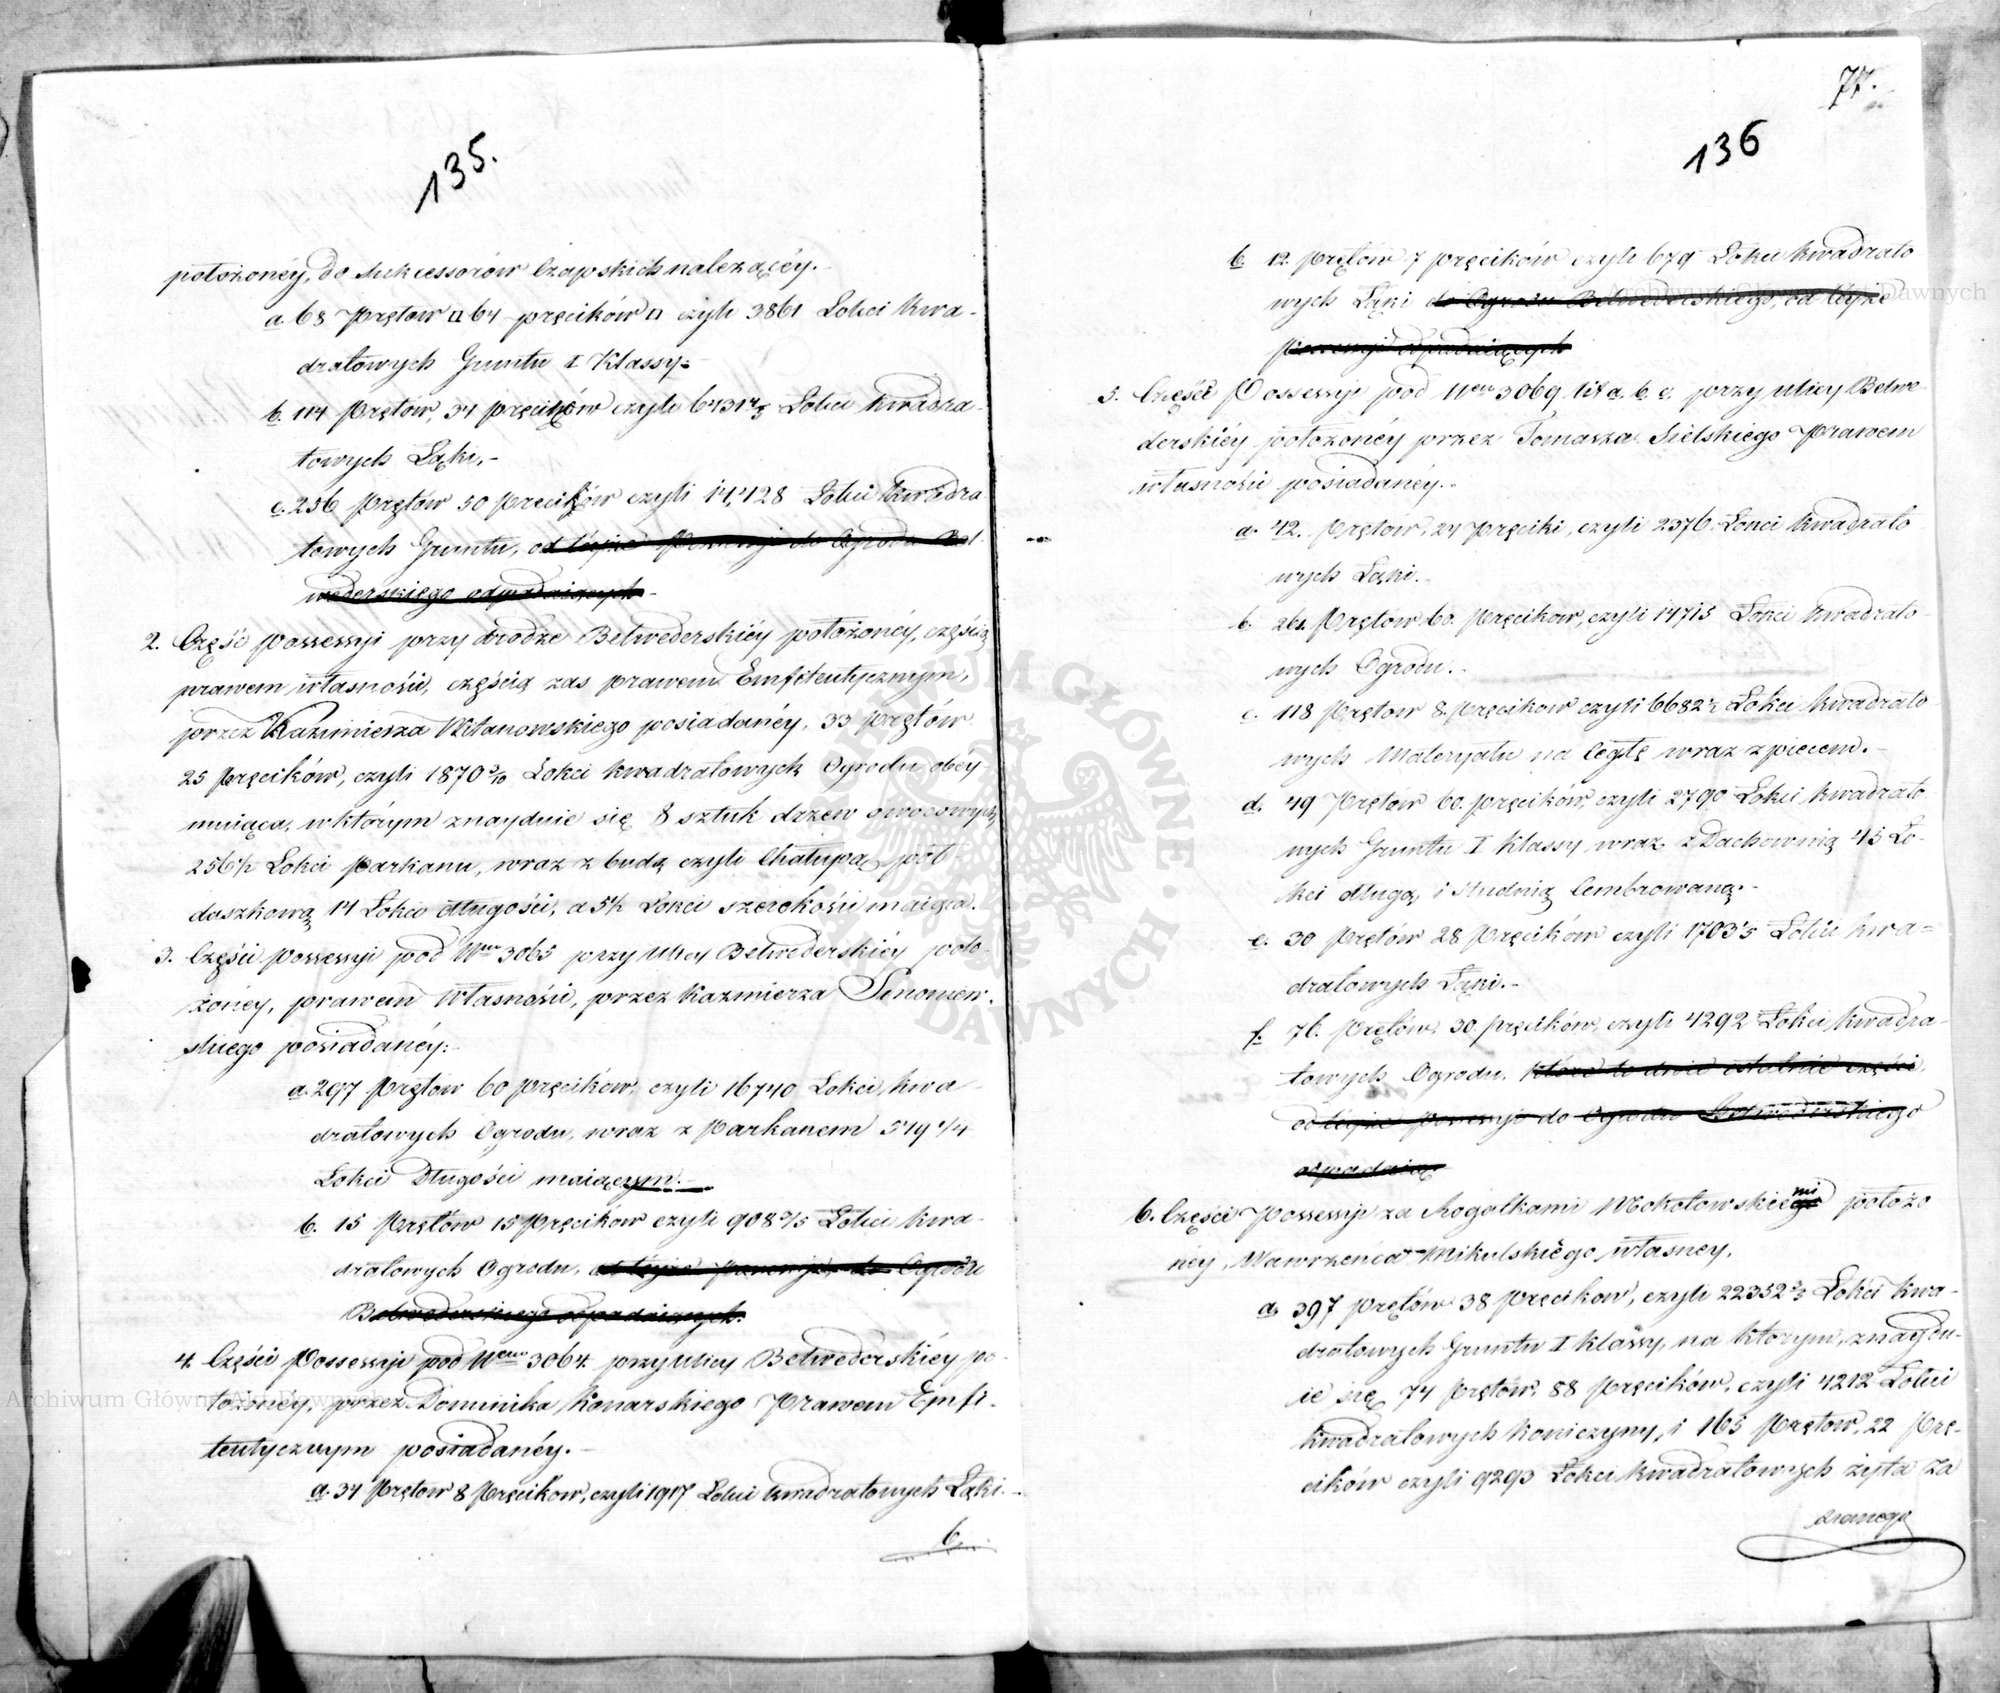 135.
położonéy, do Sukcessorów Czapskich należącéy.-
a. 68 Prętów □ 64 pręcików □ czyli 3861 Łokci kwa-
dratowych Gruntu I Klassy.-
b. 114 Prętów, 34 pręcików czyli 6431 4/5 Łokci kwadra-
towych Łąki.-
c. 256 Prętów 50 Pręcików czyli 14,428 Łokci kwadra
towych Gruntu, od téyże Possessyi do Ogrodu Bel-
wederskiego odpadaiących.-
2. Część possessyi przy drodze Belwederskiéy położonéy, częścią
prawem własności, częścią zas prawem Emfiteutycznym,
przez Kazimierza Witanowskiego posiadanéy, 33 Prętów
25 Pręcików, czyli 1870 3/10 Łokci kwadratowych Ogrodu obéy-
muiąca, w którym znayduie się 8 sztuk drzew owocowych
256 1/2 Łokci Parkanu, wraz z budą czyli Chałupą pół-
daszkową 14 Łokci długości, a 5 1/2 Łokci szerokości maiąca.
3. Części possessyi pod Nrem 3065 przy Ulicy Belwederskiéy poło-
żonéy, prawem Własności, przez Kazimierza
skiego posiadanéy:-
a. 297 Prętów 60 Pręcików, czyli 16740 Łokci kwa-
dratowych Ogrodu, wraz z Parkanem 519 1/4
Łokci Długości maiącym.-
b. 15 Prętów 15 Pręcików czyli 908 3/5 Łokci kwa-
dratowych Ogrodu, od téyże Possessyi do Ogrodu
Belwederskiego odpadaiących.
4. Części Possessyi pod Nrem 3064 przy Ulicy Belwederskiéy po-
łożonéy, przez Dominika Konarskiego Prawem Emfi-
teutycznym posiadanéy.-
a. 34 Prętów 8 Pręcików, czyli 1917 Łokci kwadratowych Łąki.-
b.
77.
136
b. 12. Prętów 7 pręcików czyli 679 Łokci kwadrato
wych Łąki do Ogrodu Belwederskiego, od téyże
Possessyi odpadaiących
5. Części Possessyi pod Nrem 3069 lit a. b. c. przy Ulicy Belwe-
derskiéy położonéy przez Tomasza Sielskiego Prawem
własności posiadanéy.-
a. 42. Prętów, 24 Pręciki, czyli 2376 Łokci kwadrato
wych Łąki.-
b. 261. Prętów 60. Pręcików, czyli 14715 Łokci kwadrato-
wych Ogrodu.-
c. 118 Prętów 8. Pręcików czyli 6682 1/2 Łokci kwadrato-
wych Materyału na Cegłę wraz z piecem.-
d. 49 Prętów 60. pręcików, czyli 2790 Łokci kwadrato-
wych Gruntu I Klassy wraz z Dachownią 45 Ło-
kci długą, i studnią Cembrowaną.-
e. 30 Prętów 28 Pręcików czyli 1703 1/5 Łokci kwa-
dratowych Łąki.-
f. 76. Prętów, 30. pręcików, czyli 4292 Łokci kwadra-
towych Ogrodu, które to dwie ostatnie części,
od téyże Possessyi do Ogrodu Belwederskiego
odpadaią
6. Części Possessyi za Rogatkami Mokotowskiemi położo
néy, Wawrzeńca Mikulskiégo własney,
a. 397 Prętów 38 Pręcików, czyli 22352 3/5 Łokci kwa-
dratowych Gruntu I Klassy, na którym, znaydu-
ie się, 74 Prętów, 88 Pręcików, czyli 4212 Łokci
kwadratowych Koniczyny, i 165 Prętów, 22 Prę-
cików czyli 9293 Łokci kwadratowych żyta za
sianego
ARCHIWUM GŁÓWNE AKT DAWNYCH
Archiwum Główne Akt Dawnych
Archiwum Główne Akt Dawnych